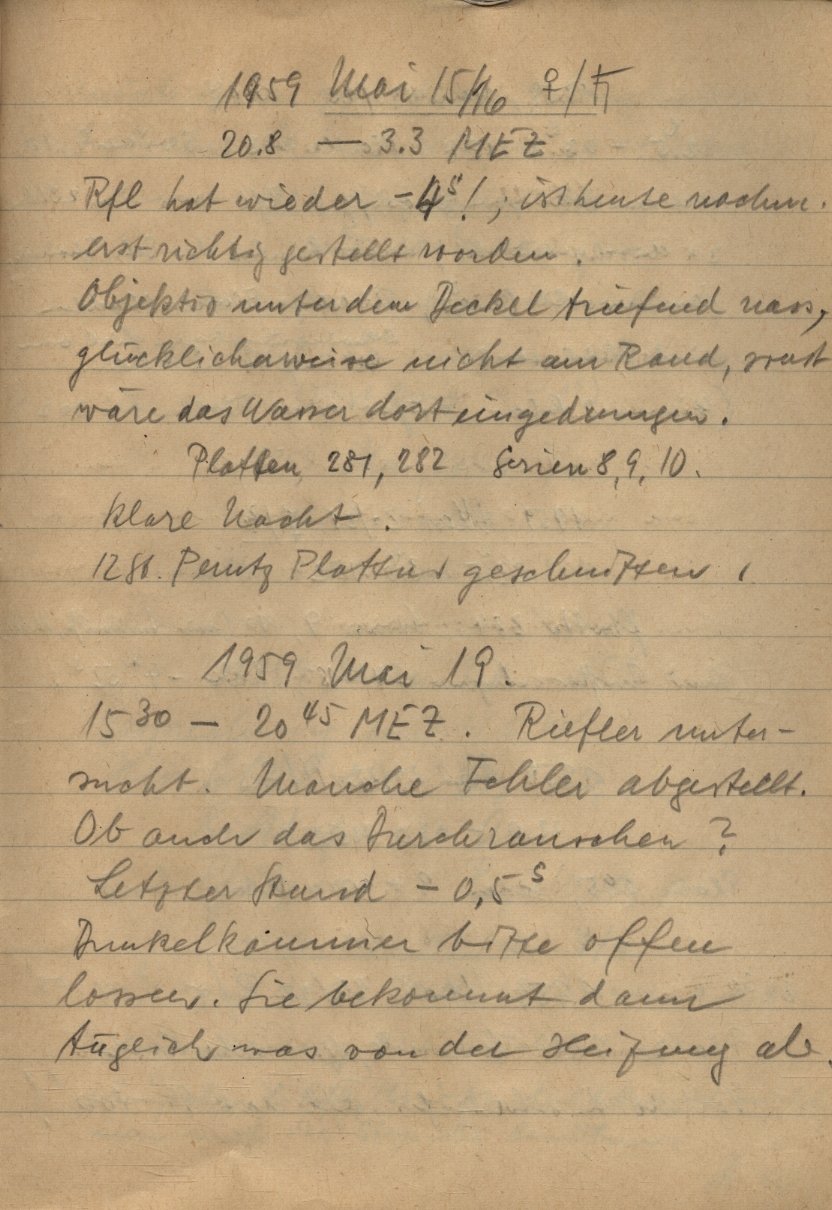 1959 Mai 15/16 ♀/♄
20.8 — 3.3 MEZ
Rfl hat wieder -4ˢ!, ist heute nachm.
erst richtig gestellt worden.
Objektiv unter dem Deckel triefend nass,
glücklicherweise nicht am Rand, sonst
wäre das Wasser dort eingedrungen.
Platten 281, 282 Serien 8, 9, 10.
Klare Nacht.
Perutz Platten geschnitten
1959 Mai 19.
15³⁰ — 20⁴⁵ MEZ. Riefler unter-
sucht. Manche Fehler abgestellt.
Ob auch das Durchrauschen?
Letzter Stand - 0,5ˢ
Dunkelkammer bitte offen
lassen. Sie bekommt dann
was von der Heizung ab.